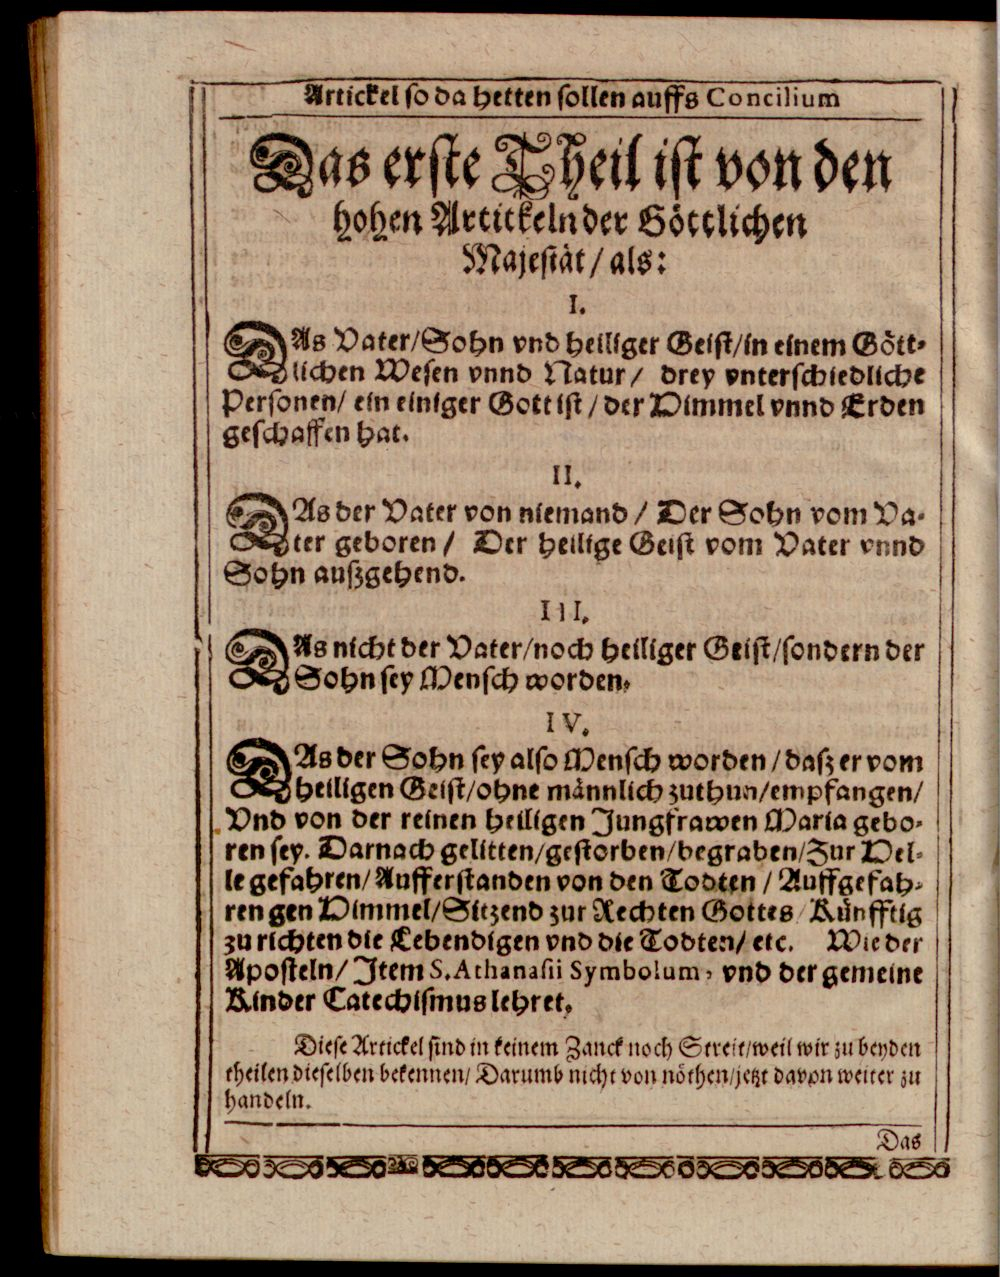 Artickel so da hetten sollen auffs Concilium
Das erste Theil ist von den
hohen Artickeln der Göttlichen
Majestät / als:
I.
DAs Vater/Sohn vnd heiliger Geist/in einem Gött-
lichen Wesen vnnd Natur / drey vnterschiedliche
Personen/ ein einiger Gott ist / der Himmel vnnd Erden
geschaffen hat.
II.
DAs der Vater von niemand / Der Sohn vom Va-
ter geboren / Der heilige Geist vom Vater vnnd
Sohn außgehend.
III.
DAs nicht der Vater/noch heiliger Geist/sondern der
Sohn sey Mensch worden.
IV.
DAs der Sohn sey also Mensch worden / daß er vom
heiligen Geist/ohne männlich zuthun/empfangen/
Vnd von der reinen heiligen Jungfrawen Maria gebo-
ren sey. Darnach gelitten/gestorben/begraben/Zur Hel-
le gefahren/ Aufferstanden von den Todten / Auffgefah-
ren gen Himmel/Sitzend zur Rechten Gottes/ Künfftig
zu richten die Lebendigen vnd die Todten/ etc. Wie der
Aposteln/ Item S. Athanasii Symbolum, vnd der gemeine
Kinder Catechismus lehret.
Diese Artickel sind in keinem Zanck noch Streit/weil wir zu beyden
theilen dieselben bekennen/ Darumb nicht von nöthen/jetzt davon weiter zu
handeln.
Das